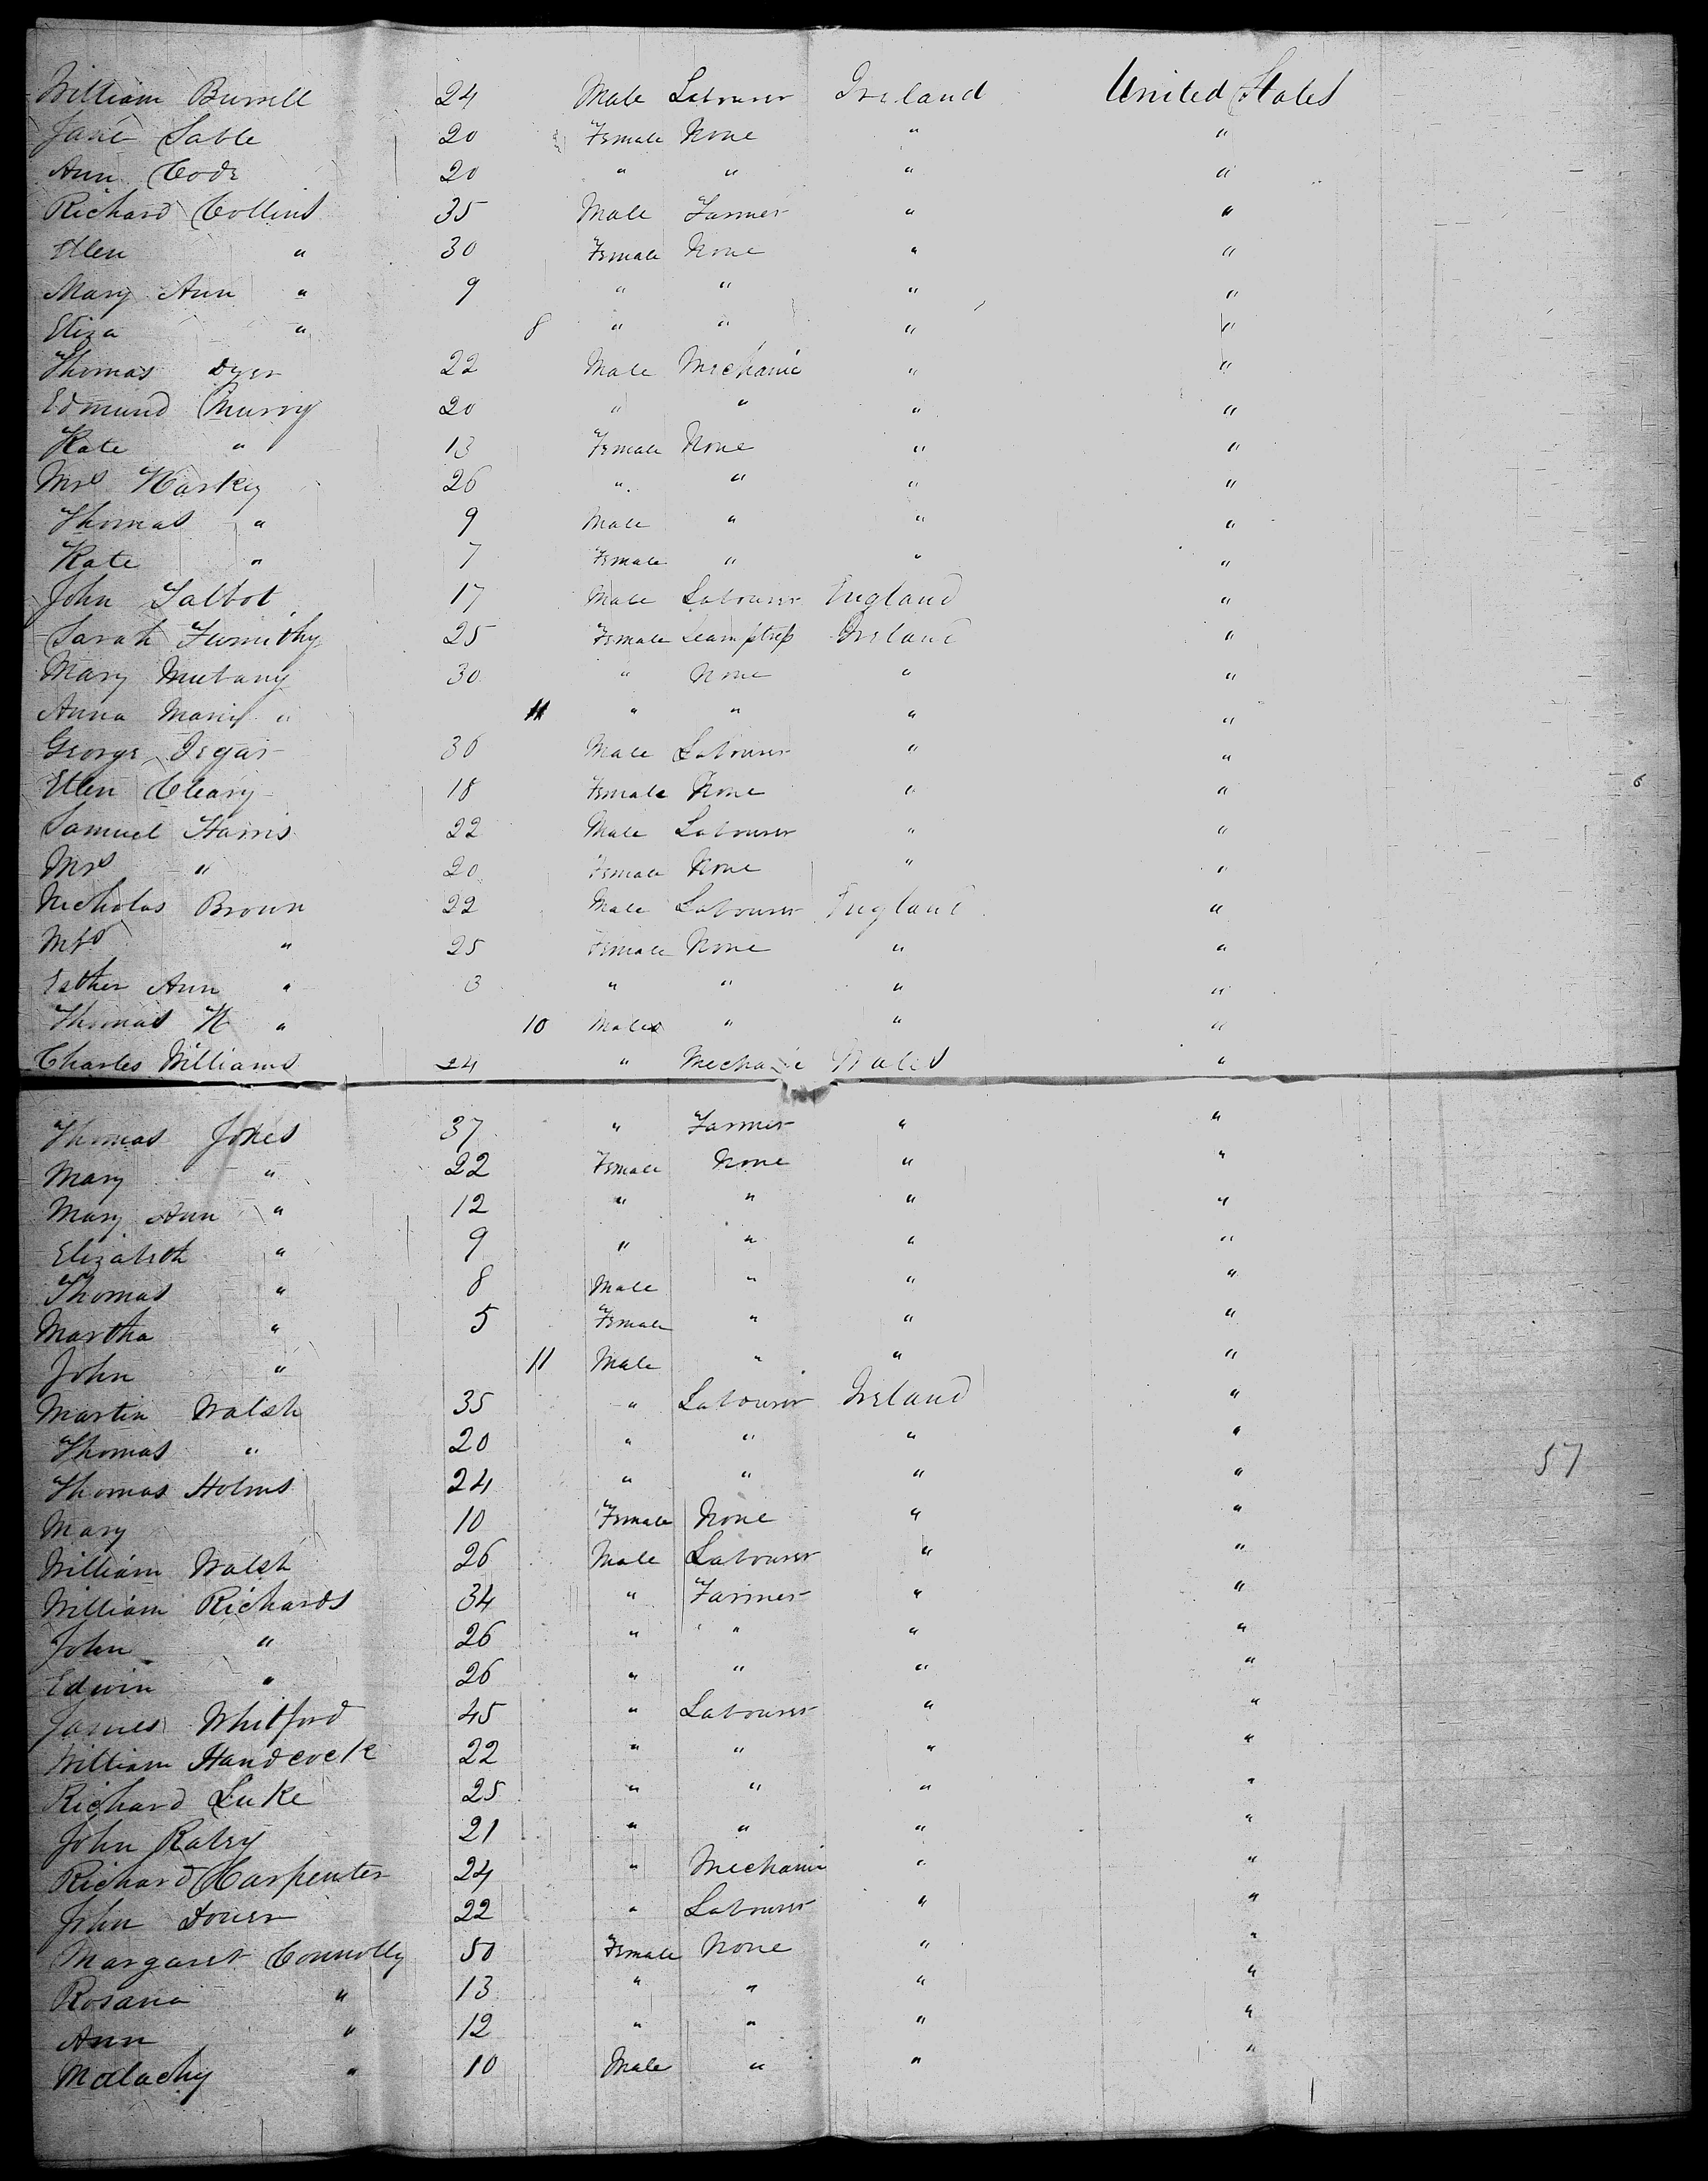 William Burrell 24 Male Labourer Ireland United States
Jane Sable 20 Female None " "
Ann Code 20 " " " "
Richard Collins 35 Male Farmer " "
Ellen " 30 Female None " "
Mary Ann " 9 " " " "
Eliza " 8 " " " "
Thomas Dyer 22 Male Mechanic " "
Edmund Murry 20 " " " "
Kate " 13 Female None " "
Mrs Harkey 26 " " " "
Thomas " 9 Male " " "
Kate " 7 Female " " "
John Talbot 17 Male Labourer England "
Sarah 25 Female Seamstress Ireland "
Mary 30 " None " "
Anna Maria " 11 " " " "
George 36 Male Labourer " "
Ellen Cleary 18 Female None " "
Samuel Harris 22 Male Labourer " "
Mrs " 20 Female None " "
Nicholas Brown 22 Male Labourer England "
Mrs " 25 Female None " "
Esther Ann " 3 " " " "
Thomas H " 10 Male " " "
Charles Williams 24 " Mechanic Wales "
Thomas Jones 37 " Farmer " "
Mary " 22 Female None " "
Mary Ann " 12 " " " "
Elizabeth " 9 " " " "
Thomas " 8 Male " " "
Martha " 5 Female " " "
John " 11 Male " " "
Martin Walsh 35 " Labourer Ireland "
Thomas " 20 " " " "
Thomas Holms 24 " " " " 57
Mary 10 Female None " "
William Walsh 26 Male Labourer " "
William Richards 34 " Farmer " "
John " 26 " " " "
Edwin " 26 " " " "
James Whitford 45 " Labourer " "
William Handcock 22 " " " "
Richard Luke 25 " " " "
John Raley 21 " " " "
Richard Carpenter 24 " Mechanic " "
John Dower 22 " Labourer " "
Margaret Connolly 50 Female None " "
Rosana " 13 " " " "
Ann " 12 " " " "
Malachy " 10 Male " " "